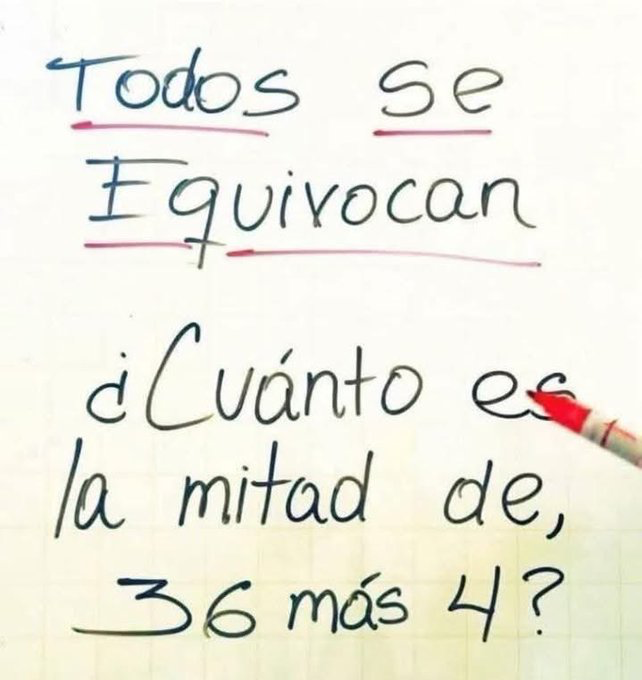 Todos se
Equivocan
¿Cuánto es
la mitad de,
36 más 4?